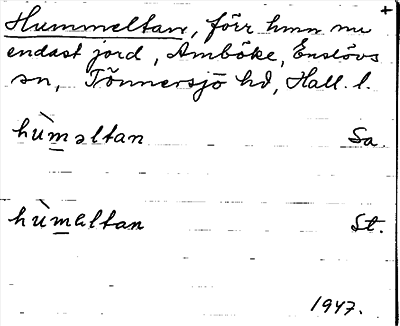 +
Hummeltan, förr hmn nu
endast jord, Amböke, Enslövs
sn, Tönnersjö hd, Hall. l.
hùməltan Sa.
hùmęltan St.
1947.